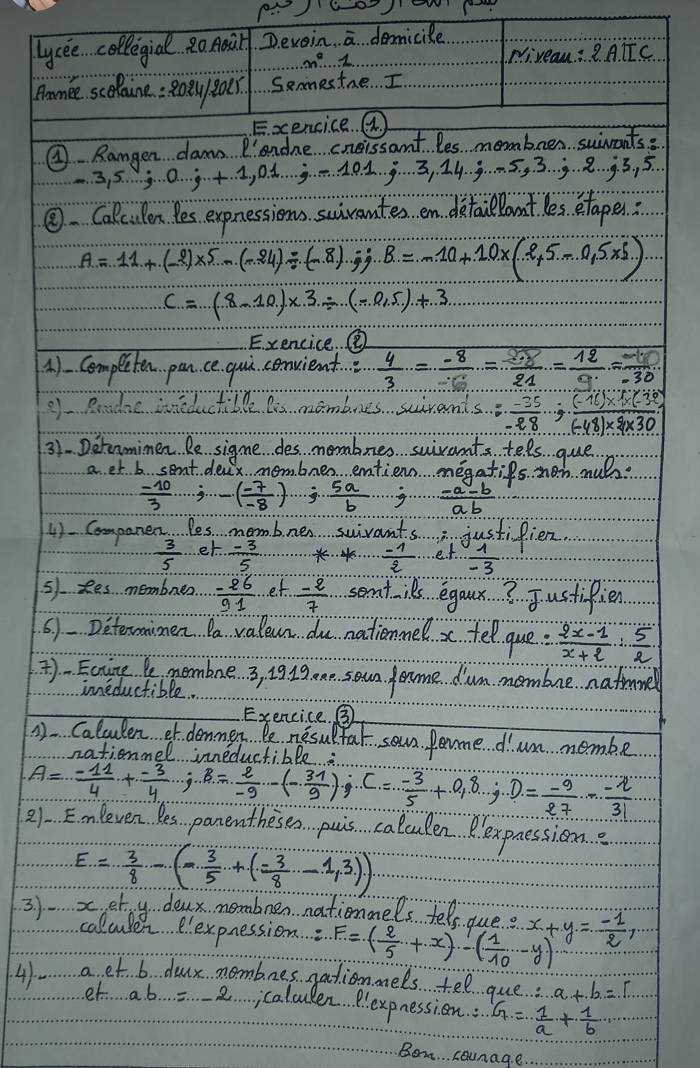 بسم الله الرحمن الرحيم
Lycée collégial 20 Août
Année scolaire : 2024/2025
Devoir à domicile
n° 1
Semestre I
Niveau : 2 AIIC
Exercice ①
① - Ranger dans l'ordre croissant les nombres suivants :
- 3,5 ; 0 ; + 1,01 ; - 101 ; 3,14 ; - 5,3 ; 2 ; 3,5
② - Calculer les expressions suivantes en détaillant les étapes :
A = 11 + (-2) × 5 - (-24) ÷ (-8) ;; B = -10 + 10 × (2,5 - 0,5 × 5)
C = (8 - 10) × 3 ÷ (-0,5) + 3
Exercice ②
1) - Compléter par ce qui convient : 4/3 = -8/-6 = 28/21 = 12/9 = -40/-30
2) - Rendre irréductible les nombres suivants : -35/-28 ; (-16)×1×(-32)/(-48)××30
3) - Déterminer le signe des nombres suivants tels que
a et b sont deux nombres entiers négatifs non nuls :
-10/3 ; -(-7/-8) ; 5a/b ; -a-b/ab
4) - Comparer les nombres suivants ; justifier
3/5 et -3/5 * * -1/2 et 1/-3
5) - Les nombres -26/91 et -2/7 sont-ils égaux ? Justifier
6) - Déterminer la valeur du rationnel x tel que : 2x-1/x+2 : 5/2
7) - Ecrire le nombre 3,1919... sous forme d'un nombre rationnel
irréductible.
Exercice ③
1) - Calculer et donner le résultat sous forme d'un nombre
rationnel irréductible :
A = -11/4 + -3/4 ; B = 2/-9 - (-31/9) ; C = -3/5 + 0,8 ; D = -9/27 - -2/3
2) - Enlever les parenthèses puis calculer l'expression :
E = 3/8 - (-3/5 + (-3/8 - 1,3))
3) - x et y deux nombres rationnels tels que : x + y = -1/2,
calculer l'expression : F = (2/5 + x) - (1/10 - y)
4) - a et b deux nombres rationnels tel que : a + b = 5
et ab = -2 ; calculer l'expression : G = 1/a + 1/b
Bon courage